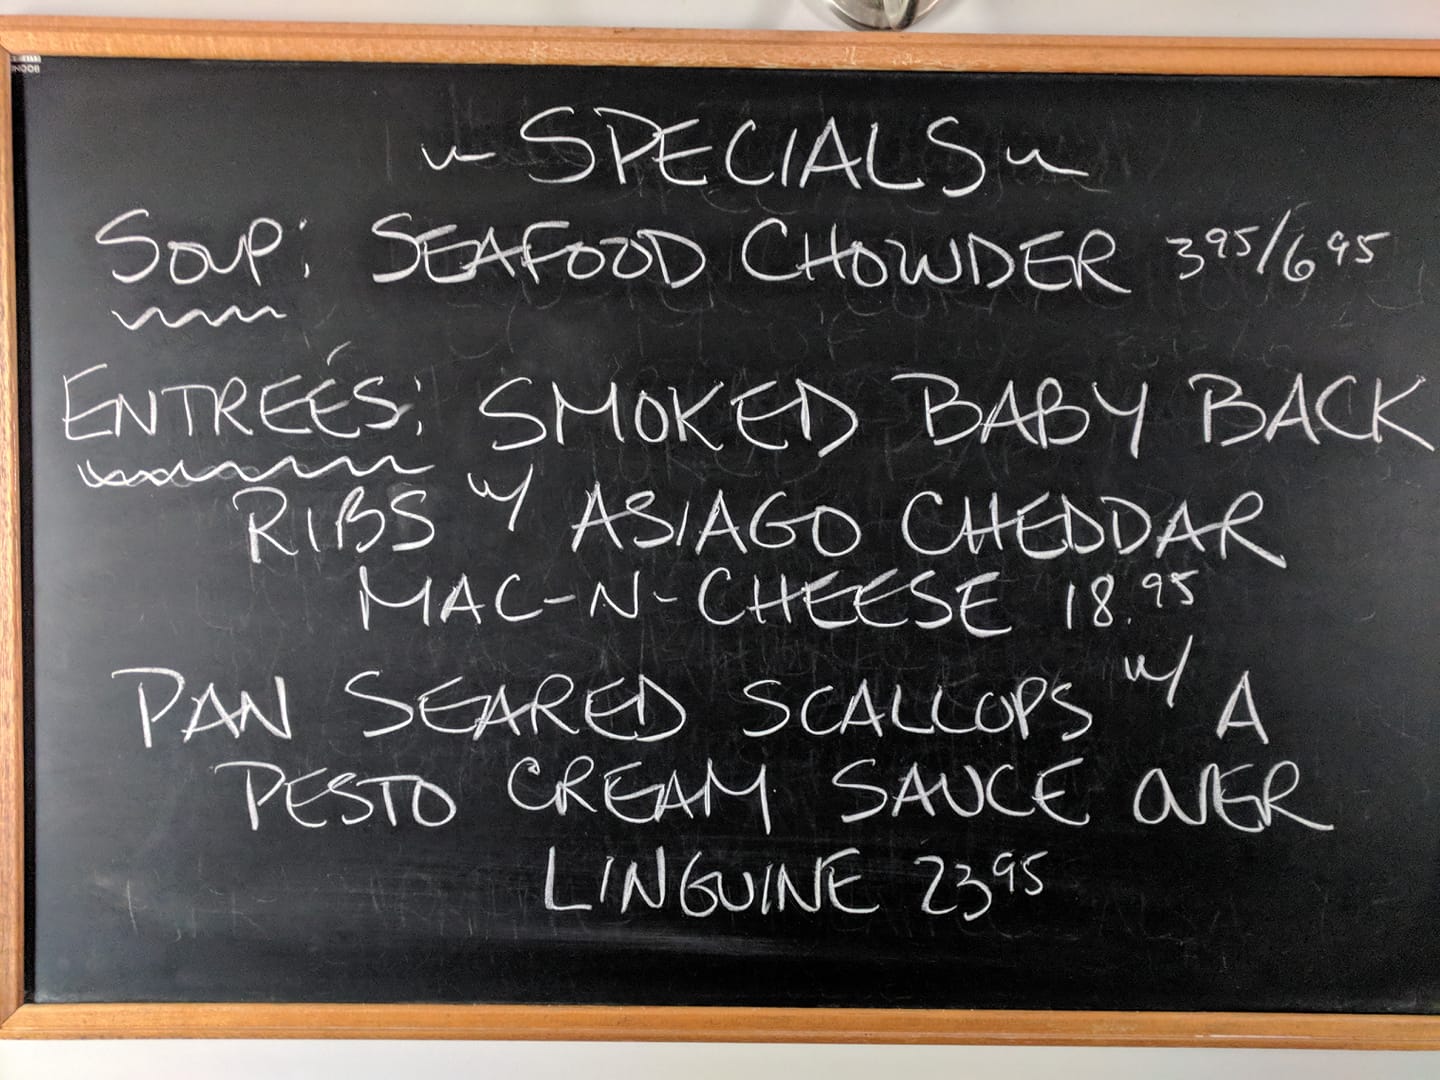 ~ SPECIALS ~
SOUP: SEAFOOD CHOWDER 3 95/6 95
ENTREÉS: SMOKED BABY BACK
RIBS w/ ASIAGO CHEDDAR
MAC-N-CHEESE 18.95
PAN SEARED SCALLOPS w/ A
PESTO CREAM SAUCE OVER
LINGUINE 23 95